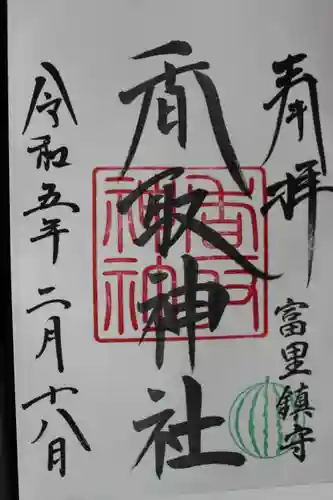 奉拝
富里鎮守
香取神社
令和五年二月十八日